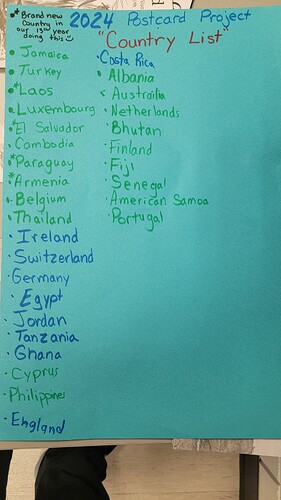 * Brand new
Country in
our 13th year
doing this
2024 Postcard Project
"Country List"
Jamaica
Turkey
*Laos
Luxembourg
*El Salvador
Cambodia
*Paraguay
*Armenia
Belgium
Thailand
Ireland
Switzerland
Germany
Egypt
Jordan
Tanzania
Ghana
Cyprus
Philippines
England
Costa Rica
Albania
Australia
Netherlands
Bhutan
Finland
Fiji
Senegal
American Samoa
Portugal